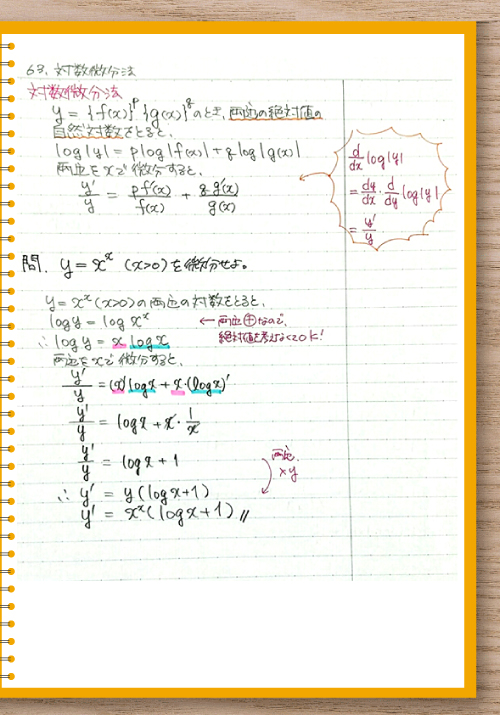 63. 対数微分法
対数微分法
y = {f(x)}^p {g(x)}^q のとき, 両辺の絶対値の
自然対数をとると,
log|y| = p log|f(x)| + q log|g(x)|
両辺を x で微分すると,
y'/y = pf'(x)/f(x) + q g'(x)/g(x)
d/dx log|y|
= dy/dx · d/dy log|y|
= y'/y
問. y = x^x (x>0) を微分せよ。
y = x^x (x>0) の両辺の対数をとると,
log y = log x^x
← 両辺⊕なので,
絶対値を考えなくてOK!
∴ log y = x log x
両辺を x で微分すると,
y'/y = (x)' log x + x·(log x)'
y'/y = log x + x · 1/x
y'/y = log x + 1
両辺
×y
∴ y' = y (log x + 1)
y' = x^x (log x + 1) //